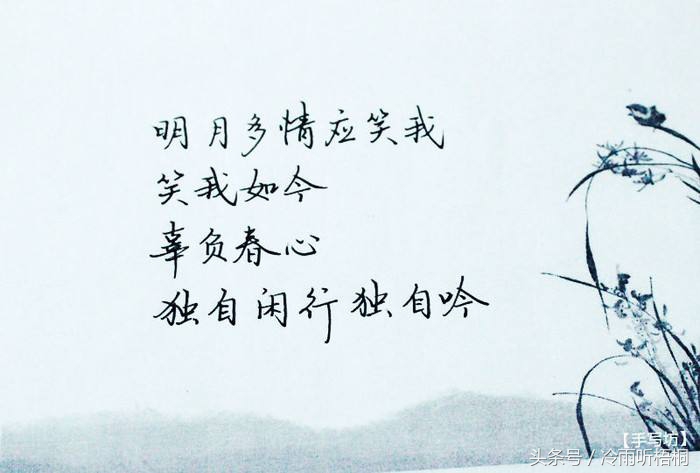 明月多情应笑我
笑我如今
辜负春心
独自闲行独自吟
【手写坊】
头条号 / 冷雨听梧桐